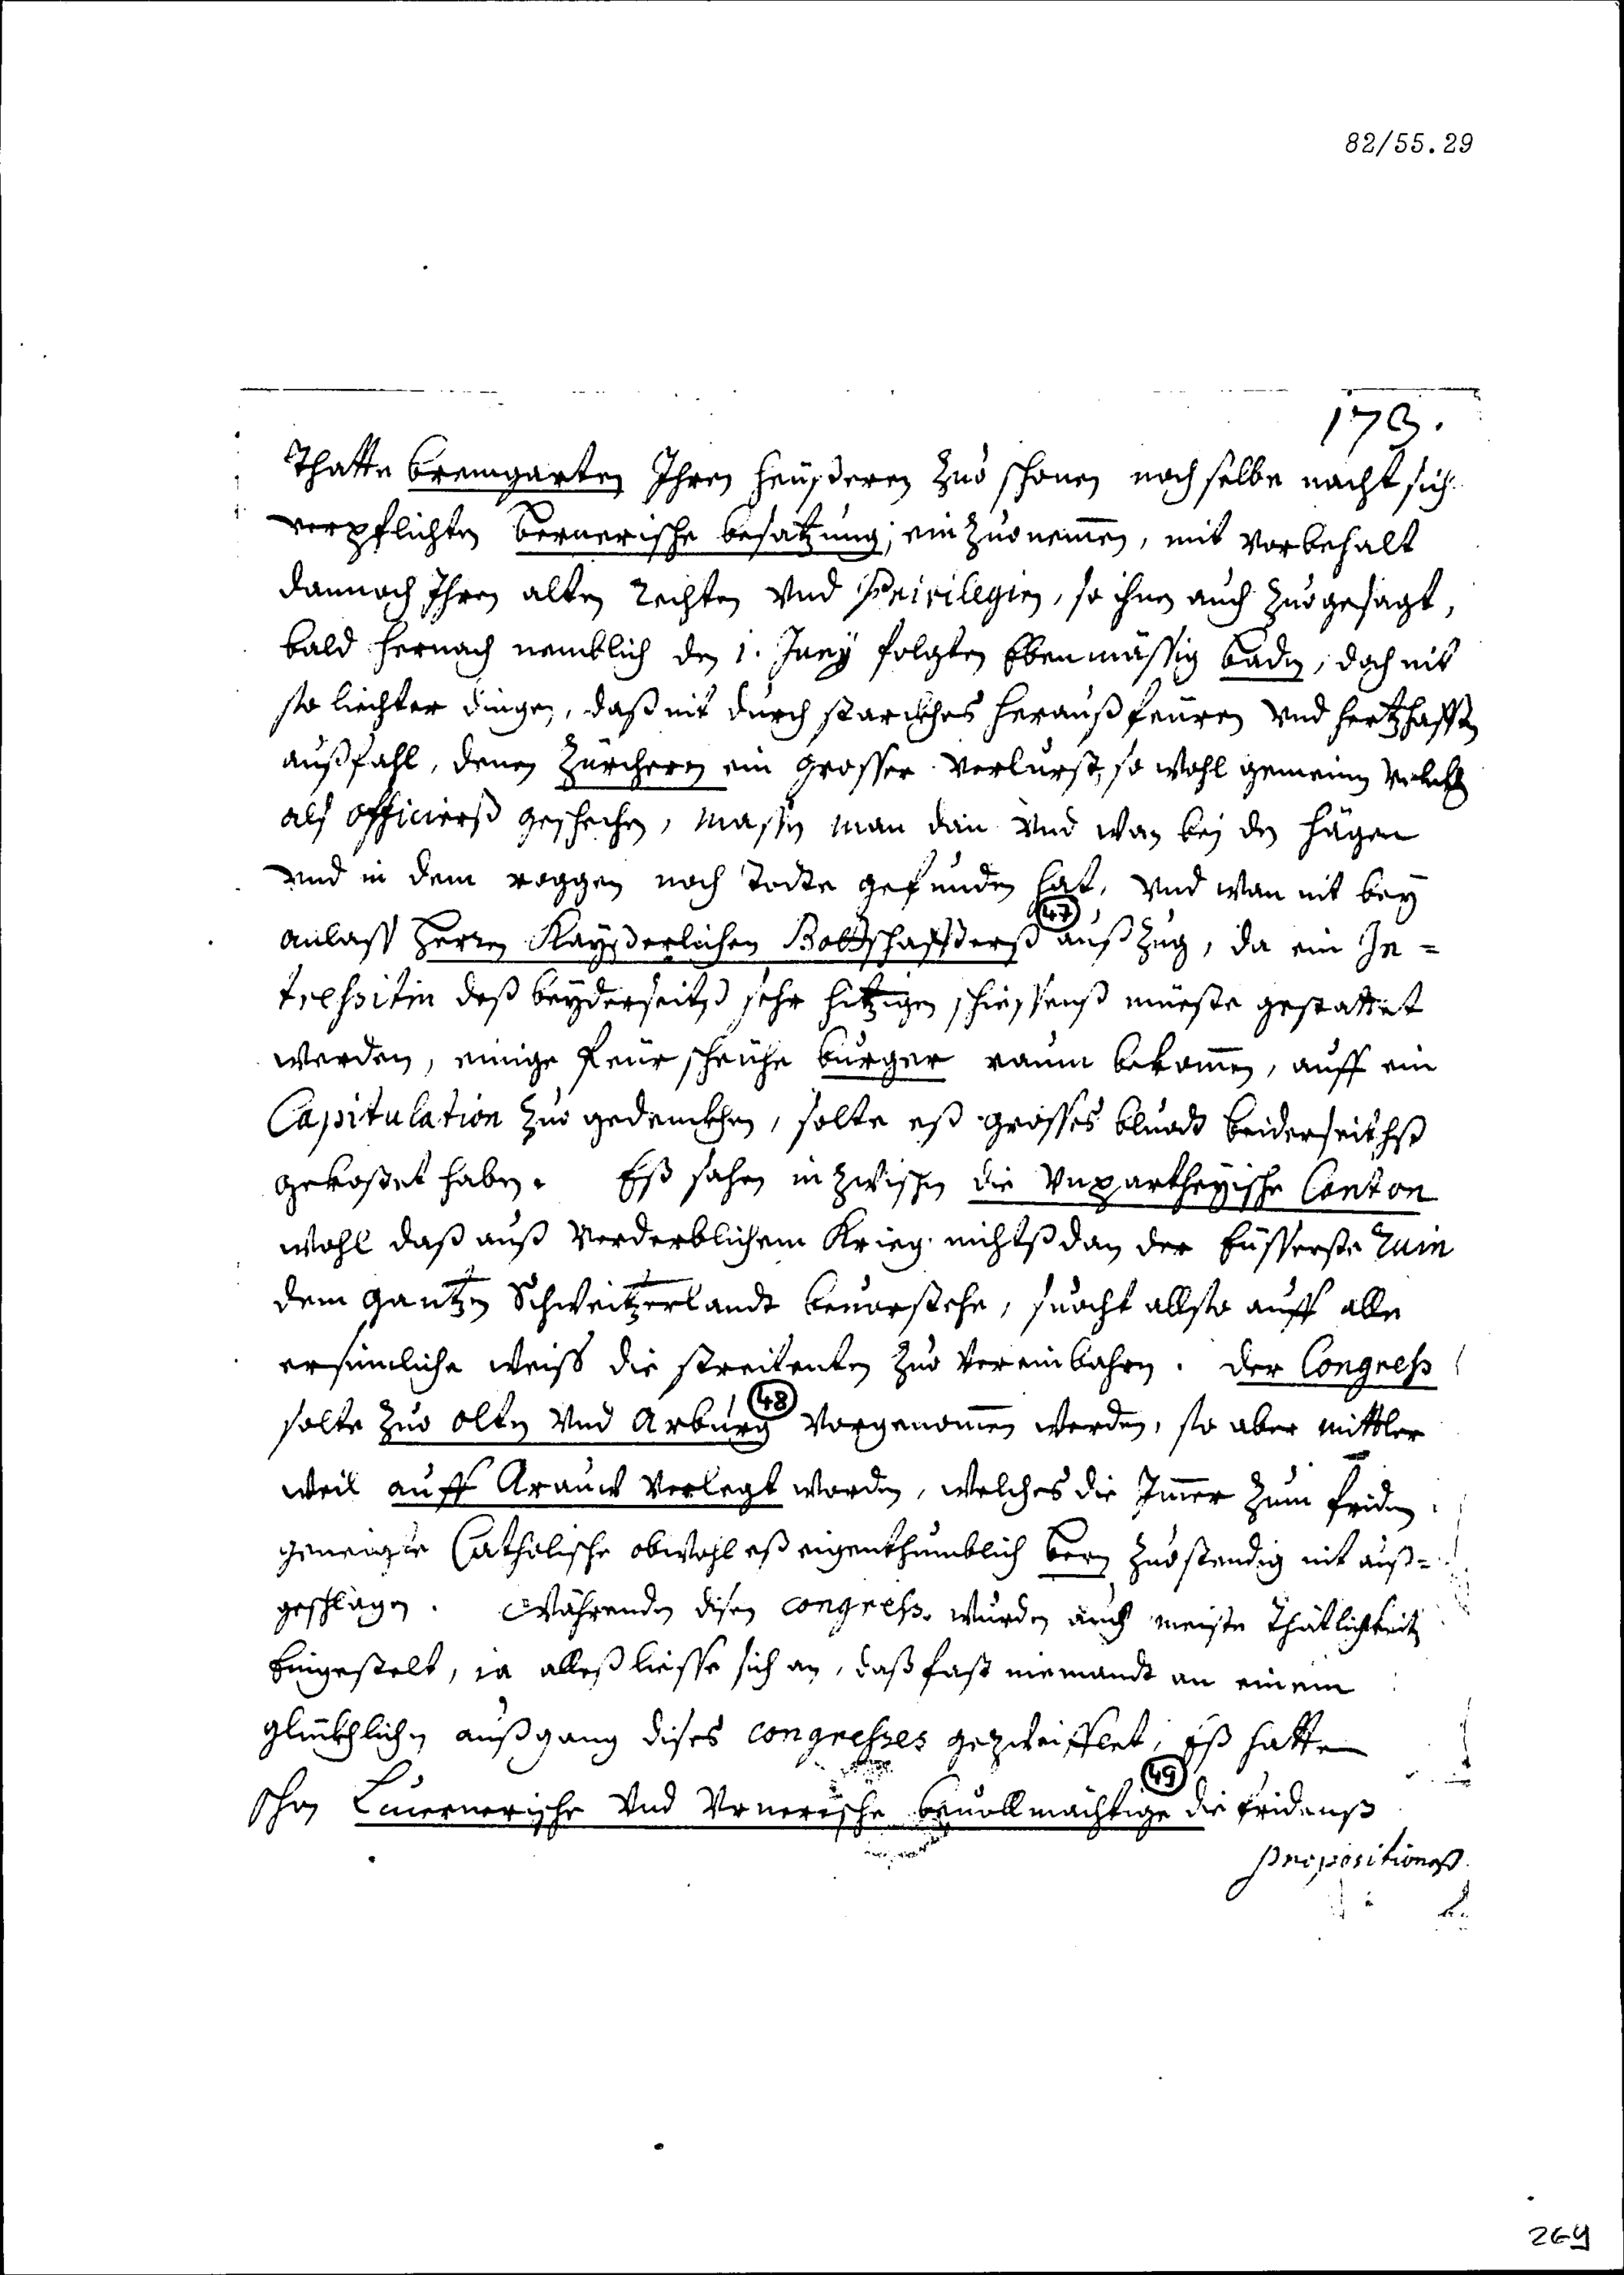 82/55.29
173.
Thatte bremgarten Ihren heüßeren zuo schonen noch selbe nacht sich
verpflichten bernerische besatzung, ein zuo nem̄en, mit vorbehalt
dannoch Ihren alten rechten vnd Privilegien, so ihnen auch zuogesagt,
bald hernach nemblich den 1. Juny folgten Ebenmässig baden, doch nit
so liechter dingen, daß nit durch starckhes heraußfeüren vnd hertzhafften
außfahl, denen Zürcheren ein grosser verlurst, so wohl gemeinen
als officierß geschechen, massen man dan vnd wan bej den hägen
vnd in dem roggen noch Todte gefunden hat, vnd wan nit bey
anlass Herren Kayßerlichen Bottschaffterß 47 außzug, da ein In=
deß beyderseitß sehr hitzigen schiessenß müeste gestattet
werden, einige feür scheühe burger raum bekom̄en, auff ein
Capitulation zuo gedenckhen, solte eß grosses bluodt beiderseithß
gekostet haben. Eß sahen in zwischen die Vnpartheyische Canton
wohl daß auß verderblichem Krieg nichtß dan der Eüsserste ruin
dem gantzen Schweitzerlandt beuorstehe, suocht allso auff alle
ersinnliche weiss die streitenten zuo vereinbahren. der Congress
solte zuo olten vnd Arburg 48 vorgenom̄en werden, so aber mittler
weil auff Arauw verlegt worden, welches die Im̄er zum friden
geneigte Catholische obwohl eß eigenthumblich bern zuostendig nit auß=
geschlagen. Währenden disen congress wurden auch meiste Thätlichkeiten
Eingestelt, ja alleß liesse sich an, daß fast niemandt an einem
glückhlichen außgang dises congresses gezweifflet, Eß hatten
schon Lucernerische vnd Vrnerische beuollmächtige 49 die fridenß
propositioneß
269